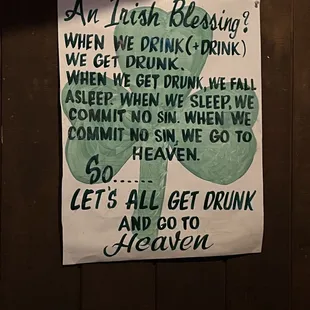 An Irish Blessing?
WHEN WE DRINK(+DRINK)
WE GET DRUNK.
WHEN WE GET DRUNK, WE FALL
ASLEEP. WHEN WE SLEEP, WE
COMMIT NO SIN. WHEN WE
COMMIT NO SIN, WE GO TO
HEAVEN.
So......
LET'S ALL GET DRUNK
AND GO TO
Heaven